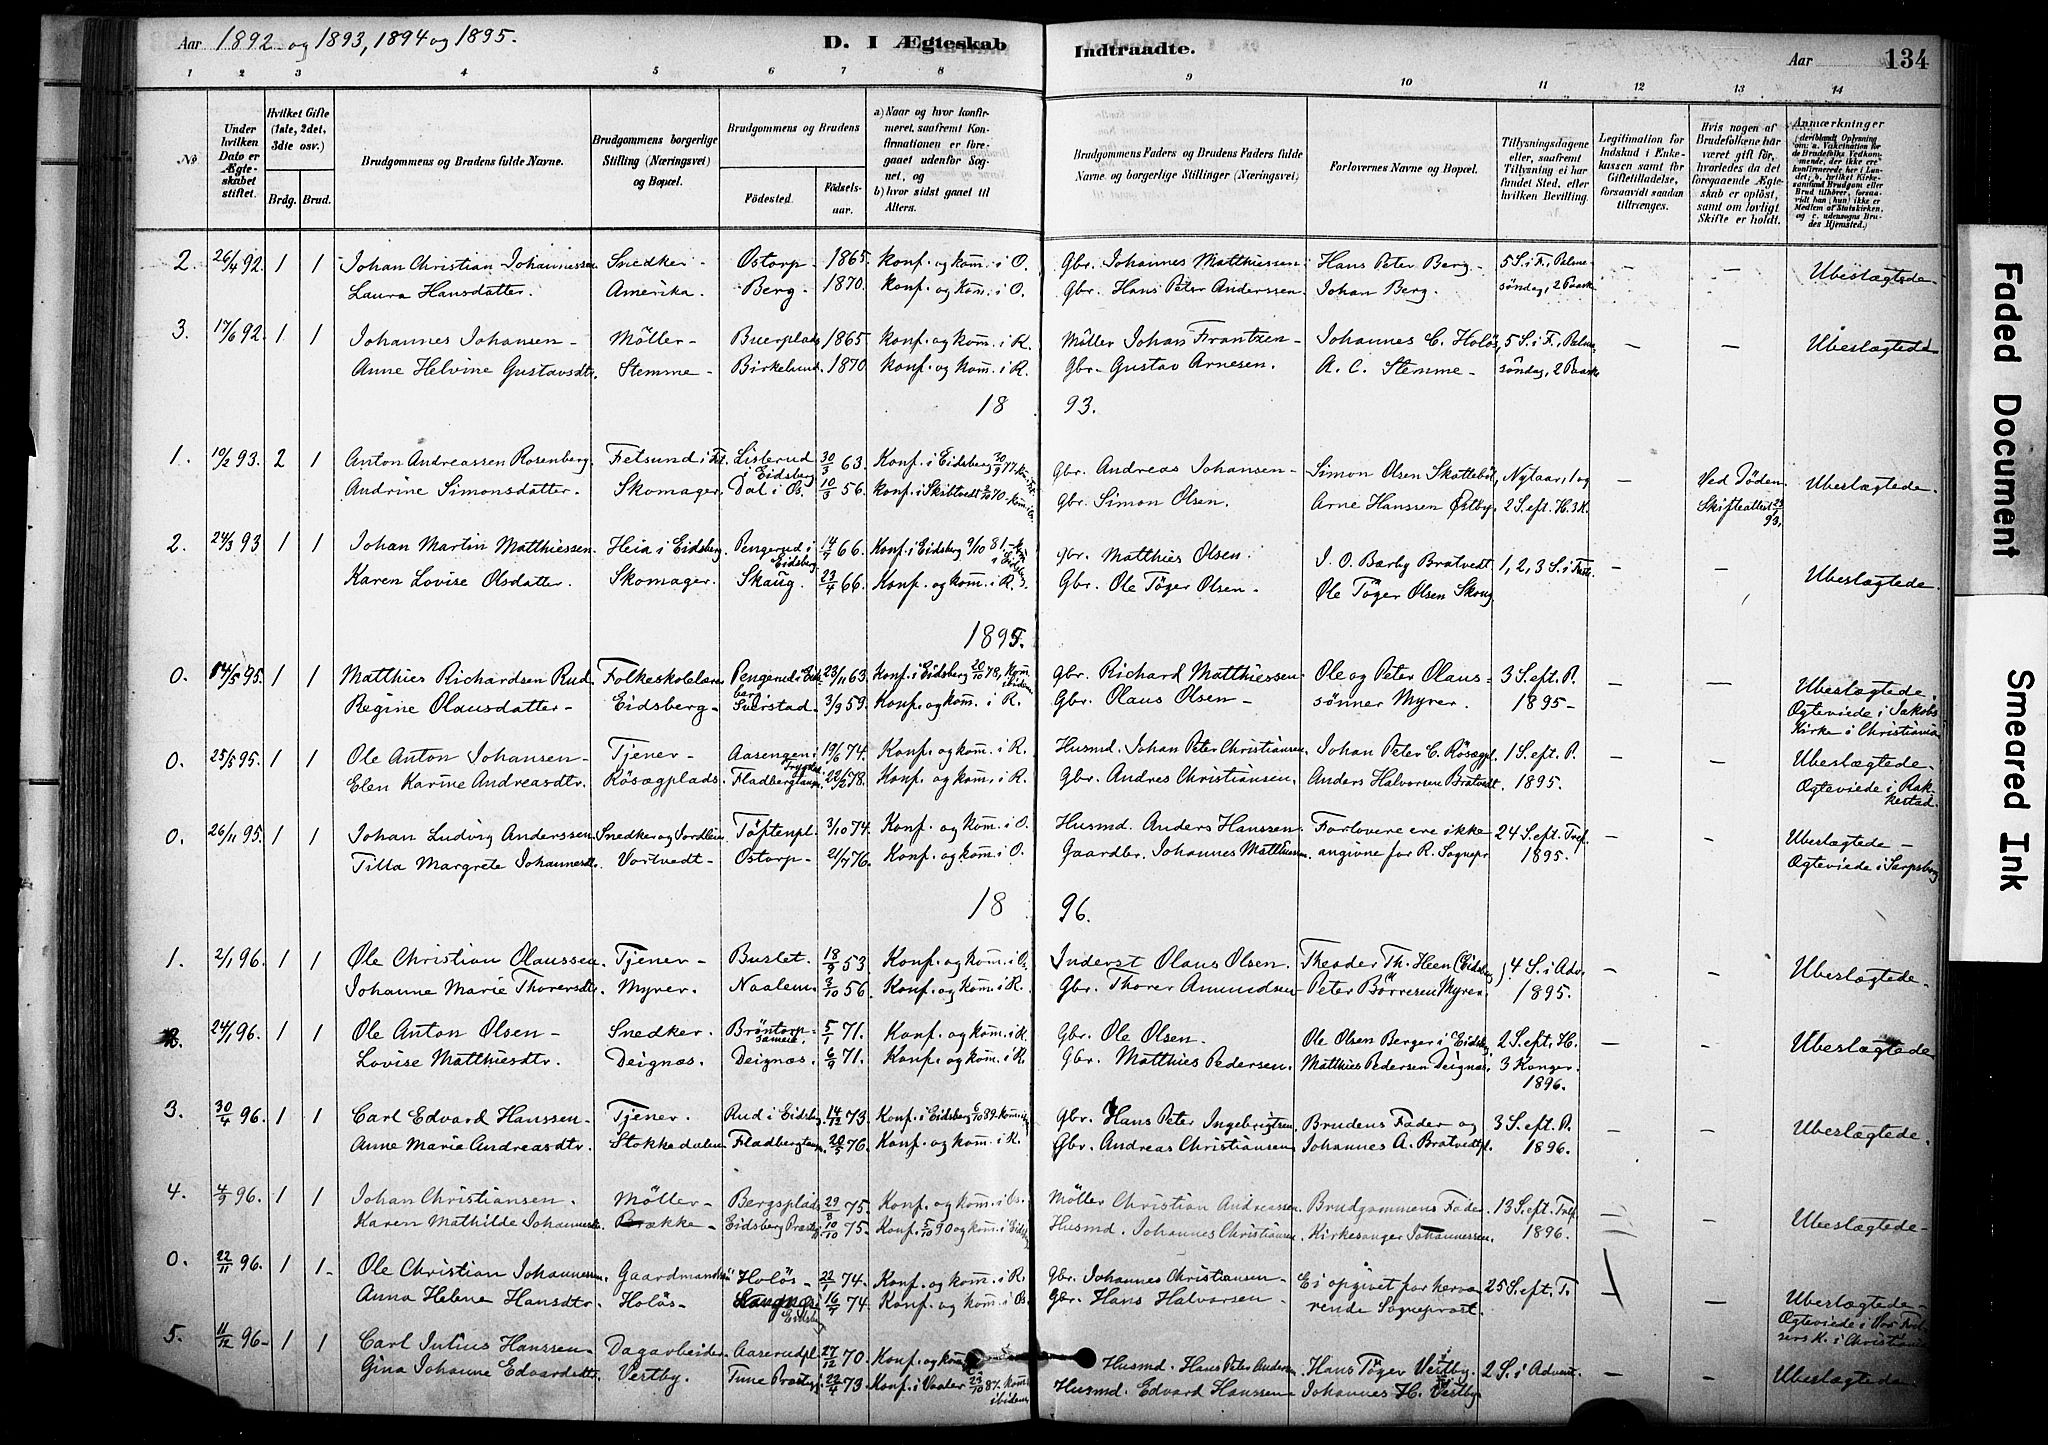 Aar 1892 og 1893, 1894 og 1895.
D. I Ægteskab Indtraadte.
Aar 134
1 2 3 4 5 6 7 8 9 10 11 12 13 14
No
Under hvilken Dato er Ægteskabet stiftet.
Hvilket Gifte (1ste, 2det, 3die osv.)
Brdg. Brud.
Brudgommens og Brudens fulde Navne.
Brudgommens borgerlige Stilling (Næringsvei) og Bopæl.
Brudgommens og Brudens
Födested. Födselsaar.
a) Naar og hvor konfirmeret, saafremt Konfirmationen er foregaaet udenfor Sognet, og
b) hvor sidst gaaet til Alters.
Brudgommens Faders og Brudens Faders fulde Navne og borgerlige Stillinger (Næringsvei)
Forlovernes Navne og Bopæl.
Tillysningsdagene eller, saafremt Tillysning ei har fundet Sted, efter hvilken Bevilling.
Legitimation for Indskud i Enkekassen samt for Giftetilladelse, forsaavidt saadan tiltrænges.
Hvis nogen af Brudefolkene har været gift för, hvorledes da det foregaaende Ægteskab er oplöst, samt om lovligt Skifte er holdt.
Anmærkninger
2. 26/4 92. 1 1 Johan Christian Johannessen Snedker - Ostorp - 1865 konf. og kom. i O. Gbr. Johannes Matthiessen Hans Peter Berg - 5 S. i F., Palme- - - Ubeslægtede -
Laura Hansdatter. Amerika. Berg - 1870. konf. og kom. i O. Gbr. Hans Peter Anderssen Johan Berg. söndag, 2 Paaske
3. 17/6 92. 1 1 Johannes Johansen - Möller - Buerplads 1865 konf. og kom. i R. Möller Johan Frantzen - Johannes C. Holös 5 S. i F., Palme- - - Ubeslægtede
Anne Helvine Gustavsdtr. Stemme - Birkelund 1870 konf. og kom. i R. Gbr. Gustav Arnesen. A. C. Stemme - söndag, 2 Paaske
18 93.
1. 10/2 93. 2 1 Anton Andreassen Rosenberg. Fetsund i Fet Listerud i Eidsberg 30/3 63. Konf. i Eidsberg Gbr. Andreas Johansen - Simon Olsen Skattebøl Nytaar, 1 og - Ved Döden Ubeslægtede.
Andrine Simonsdatter. Skomager. Dal i Os. 10/3 56. konf. i Skibtvedt Gbr. Simon Olsen. Arne Hanssen Østby. 2 S. eft. H. 3 K. Skifteattest
2. 24/3 93 1 1 Johan Martin Matthiessen Heia i Eidsberg Pengerud i Eidsberg 14/7 66. Konf. i Eidsberg 2/10 81 - Gbr. Matthies Olsen. I. O. Barby Bratvedt 1, 2, 3 S. i Faste. - - Ubeslægtede
Karen Lovise Olsdatter. Skomager. Skaug. 23/4 66. Konf. og kom. i R. Gbr. Ole Töger Olsen - Ole Töger Olsen Skoug
1895.
0. 14/5 95. 1 1 Matthies Richardsen Rud Folkeskolelærer Pengerud i Eidsberg 23/11 63 Konf. i Eidsberg 20/10 78, kom. ibidem Gbr. Richard Matthiessen Ole og Peter Olaus- 3 S. eft. P. - - Ubeslægtede.
Regine Olausdatter - Eidsberg - Sverstad - 3/9 59. Konf. og kom. i R. Gbr. Olaus Olsen - sönner Myrer. 1895 - Ogteviede i Jakobs Kirke i Christiania
0. 25/5 95. 1 1 Ole Anton Johansen - Tjener - Aasengen i 19/6 74. Konf. og kom. i R. Husmd. Johan Peter Christiansen Johan Peter C. Rösægpl. 1 S. eft. P. - - Ubeslægtede -
Elen Karine Andreasdtr. Rösægplads. Fladbergtangen 22/6 78. Konf. og kom. i R. Gbr. Andres Christiansen. Anders Halvorsen Bratvedt 1895. Ogteviede i Rakkestad.
0. 26/11 95. 1 1 Johan Ludvig Anderssen Snedker og Töftenpl. 3/10 74. Konf. og kom. i O. Husmd. Anders Hanssen Forlovere ere ikke 24 S. eft. Tref. - - Ubeslægtede -
Tilla Margrete Johannesdtr. Vortvedt - Ostorp - 21/7 76. Konf. og kom. i O. Gaardbr. Johannes Matthiessen. angivne for R. Sognepr. 1895. Ogteviede i Sarpsborg
18 96.
1. 2/1 96. 1 1 Ole Christian Olaussen. Tjener - Buslet. 18/9 53. Konf. og kom. i Os. Inderst Olaus Olsen. Theodor Th. Heen (Eidsberg) 4 S. i Adv. - - Ubeslægtede.
Johanne Marie Thorersdtr. Myrer. Naalem. 3/10 56. Konf. og kom. i R. Gbr. Thorer Amundsen - Peter Börresen Myrer. 1895.
24/1 96. 1 1 Ole Anton Olsen - Snedker. Bröntorp sameie. 5/1 71. Konf. og kom. i R. Gbr. Ole Olsen. Ole Olsen Berger i Eidsberg 2 S. eft. H. - - Ubeslægtede
Lovise Matthiesdtr. Deignæs. Deignæs. 6/9 71. Konf. og kom. i R. Gbr. Matthies Pedersen. Matthies Pedersen Deignæs. 3 Konger 1896.
3. 30/4 96. 1 1 Carl Edvard Hanssen - Tjener. Rud i Eidsberg 14/12 73. Konf. i Eidsberg 6/10 89 - Gbr. Hans Peter Ingebrigtsen. Brudens Fader og 3 S. eft. P. - - Ubeslægtede.
Anne Marie Andreasdtr. Stokkedalen Fladbergtangen. 20/5 76. Konf. og kom. i R. Gbr. Andreas Christiansen Johannes A. Bratvedtpl. 1896.
4. 4/9 96. 1 1 Johan Christiansen. Möller - Bergsplads 29/8 75. Konf. og kom. i Os. Möller Christian Andreassen Brudgommens Fader 13 S. eft. Tref. - - Ubeslægtede -
Karen Mathilde Johannesdtr. Brække - Eidsberg Præstegj. 10/10 75. Konf. 5/10 90 og kom. i Eidsberg Husmd. Johannes Christiansen. Kirkesanger Johannessen. 1896.
0. 22/11 96. 1 1 - Ole Christian Johannessen. Gaardmandssön Holös - 22/1 74. Konf. og kom. i R. Gbr. Johannes Christiansen - Ei opgivet for herva- 25 S. eft. T. - Ubeslægtede -
Anna Helene Hansdtr. Holös - Eidsberg 16/7 74. Konf. og kom. i Os. Gbr. Hans Halvorsen. rende Sogneprest. Ogteviede i Vor Frelsers K. i Christiania
5. 11/12 96 - 1 1 Carl Julius Hanssen - Dagarbeider Aaserudpl. 27/12 70. Konf. og kom. Husmd. Hans Peter Anders. Hans Töger Vestby. 2 S. i Advent. - - Ubeslægtede
Gina Johanne Edvardsdtr. Vestby. Tune Præstegj. 22/4 73. Konf. i Vaaler 87. kom. ibidem Husmd. Edvard Hanssen Johannes H. Vestby
Faded Document
Smeared Ink